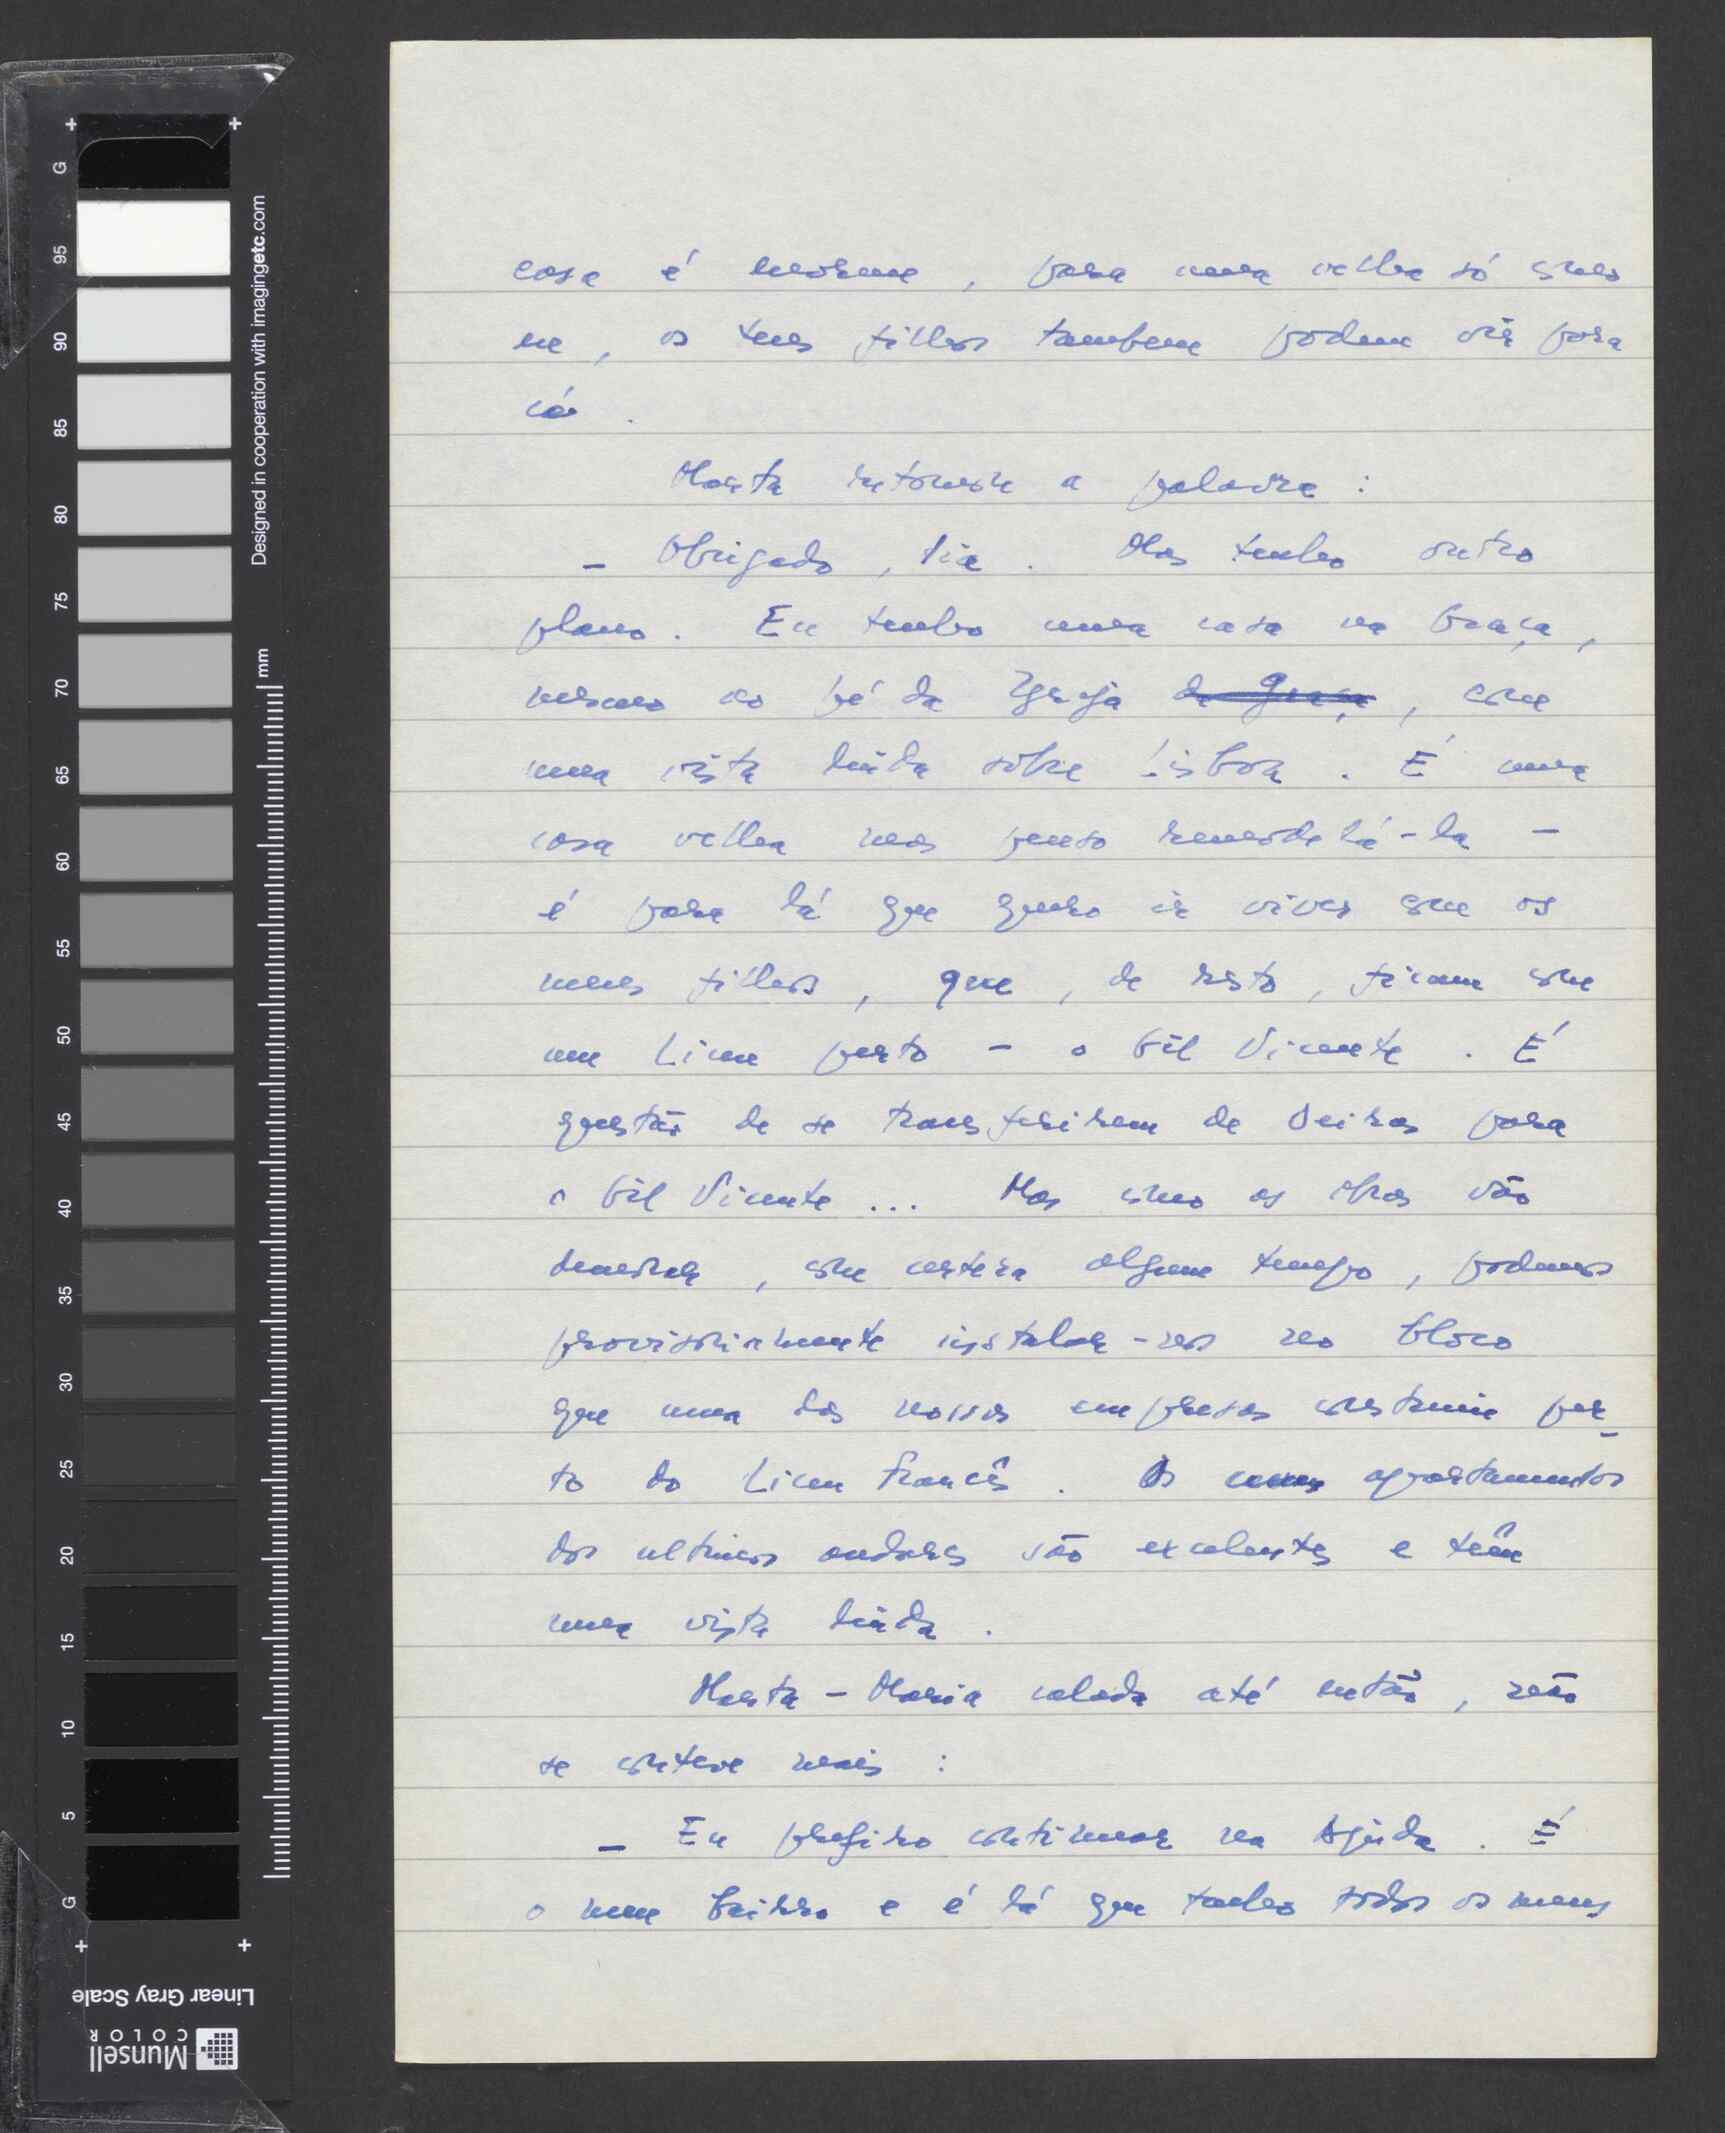 casa é enorme, para uma velha só como
eu, os teus filhos tambem podem vir para
cá.
Marta retomou a palavra:
– Obrigado, tia. Mas tenho outro
plano. Eu tenho uma casa na Graça,
mesmo ao pé da Igreja da Graça, com
uma vista linda sobre Lisboa. É uma
casa velha mas penso remodelá-la –
é para lá que quero ir viver com os
meus filhos, que, de resto, ficam com
um Liceu perto – o Gil Vicente. É
questão de se transferirem de Oeiras para
o Gil Vicente... Mas como as obras vão
demorar, com certeza algum tempo, podemos
provisoriamente instalar-nos no bloco
que uma das nossas empresas construiu per-
to do Liceu Francês. Os apartamentos
dos ultimos andares são excelentes e têm
uma vista linda.
Marta-Maria calada até então, não
se conteve mais:
– Eu prefiro continuar na Ajuda. É
o meu bairro e é lá que tenho todos os meus
G
95
90
85
80
75
70
65
60
55
50
45
40
35
30
25
20
15
10
5
G
mm
Designed in cooperation with imagingetc.com
Linear Gray Scale
Munsell
COLOR